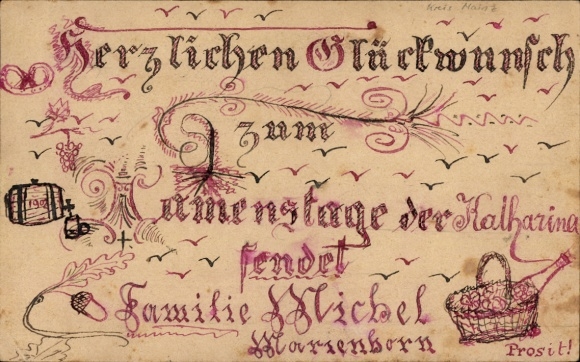 Kreis Mainz
Herzlichen Glückwunsch
zum
Namenstage der Katharina
sendet
Familie Michel
Marienborn
Prosit!